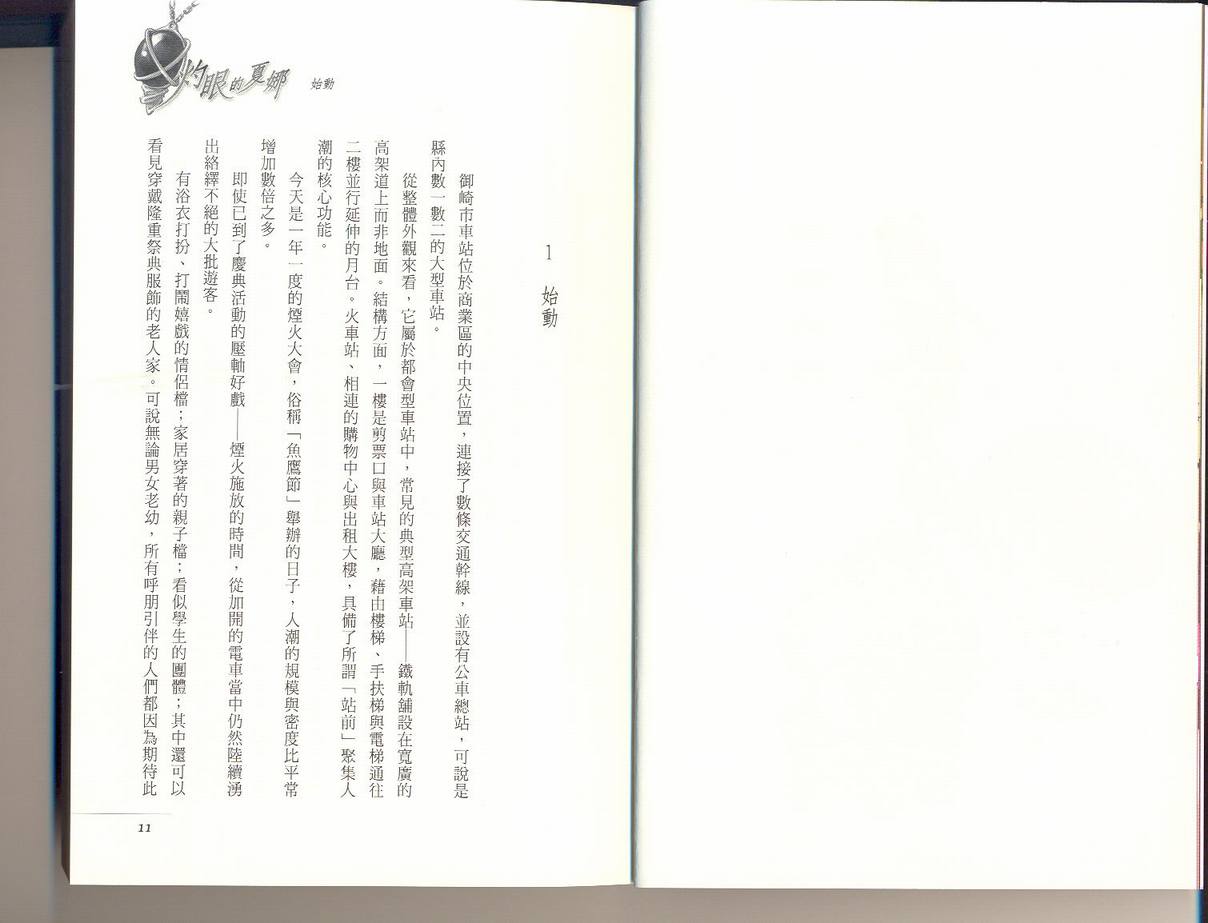 灼眼的夏娜 始動
1 始動
御崎市車站位於商業區的中央位置，連接了數條交通幹線，並設有公車總站，可說是
縣內數一數二的大型車站。
從整體外觀來看，它屬於都會型車站中，常見的典型高架車站——鐵軌舖設在寬廣的
高架道上而非地面。結構方面，一樓是剪票口與車站大廳，藉由樓梯、手扶梯與電梯通往
二樓並行延伸的月台。火車站、相連的購物中心與出租大樓，具備了所謂「站前」聚集人
潮的核心功能。
今天是一年一度的煙火大會，俗稱「魚鷹節」舉辦的日子，人潮的規模與密度比平常
增加數倍之多。
即使已到了慶典活動的壓軸好戲——煙火施放的時間，從加開的電車當中仍然陸續湧
出絡繹不絕的大批遊客。
有浴衣打扮、打鬧嬉戲的情侶檔；家居穿著的親子檔；看似學生的團體；其中還可以
看見穿戴隆重祭典服飾的老人家。可說無論男女老幼，所有呼朋引伴的人們都因為期待此
11